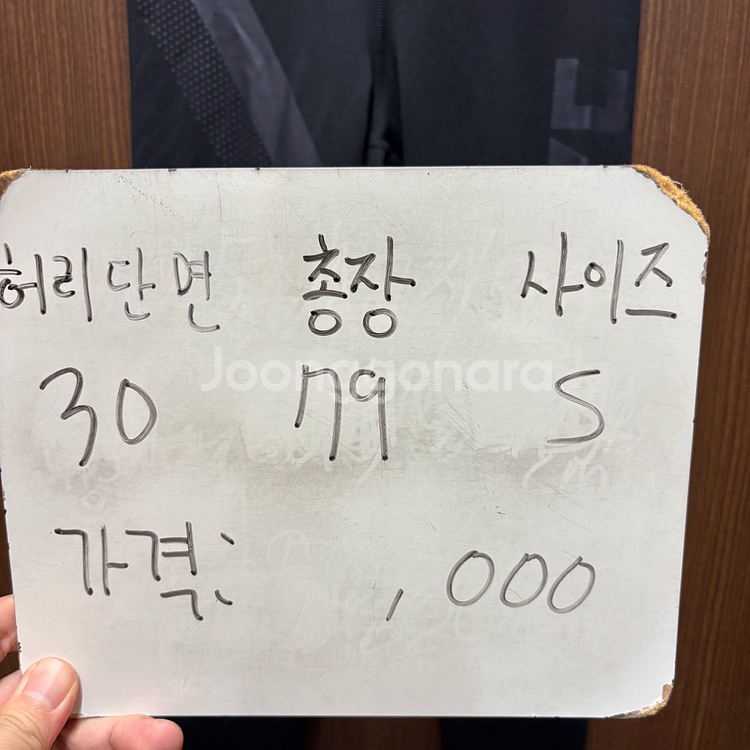 허리단면 총장 사이즈
Joonggonara
30 79 S
가격: ,000